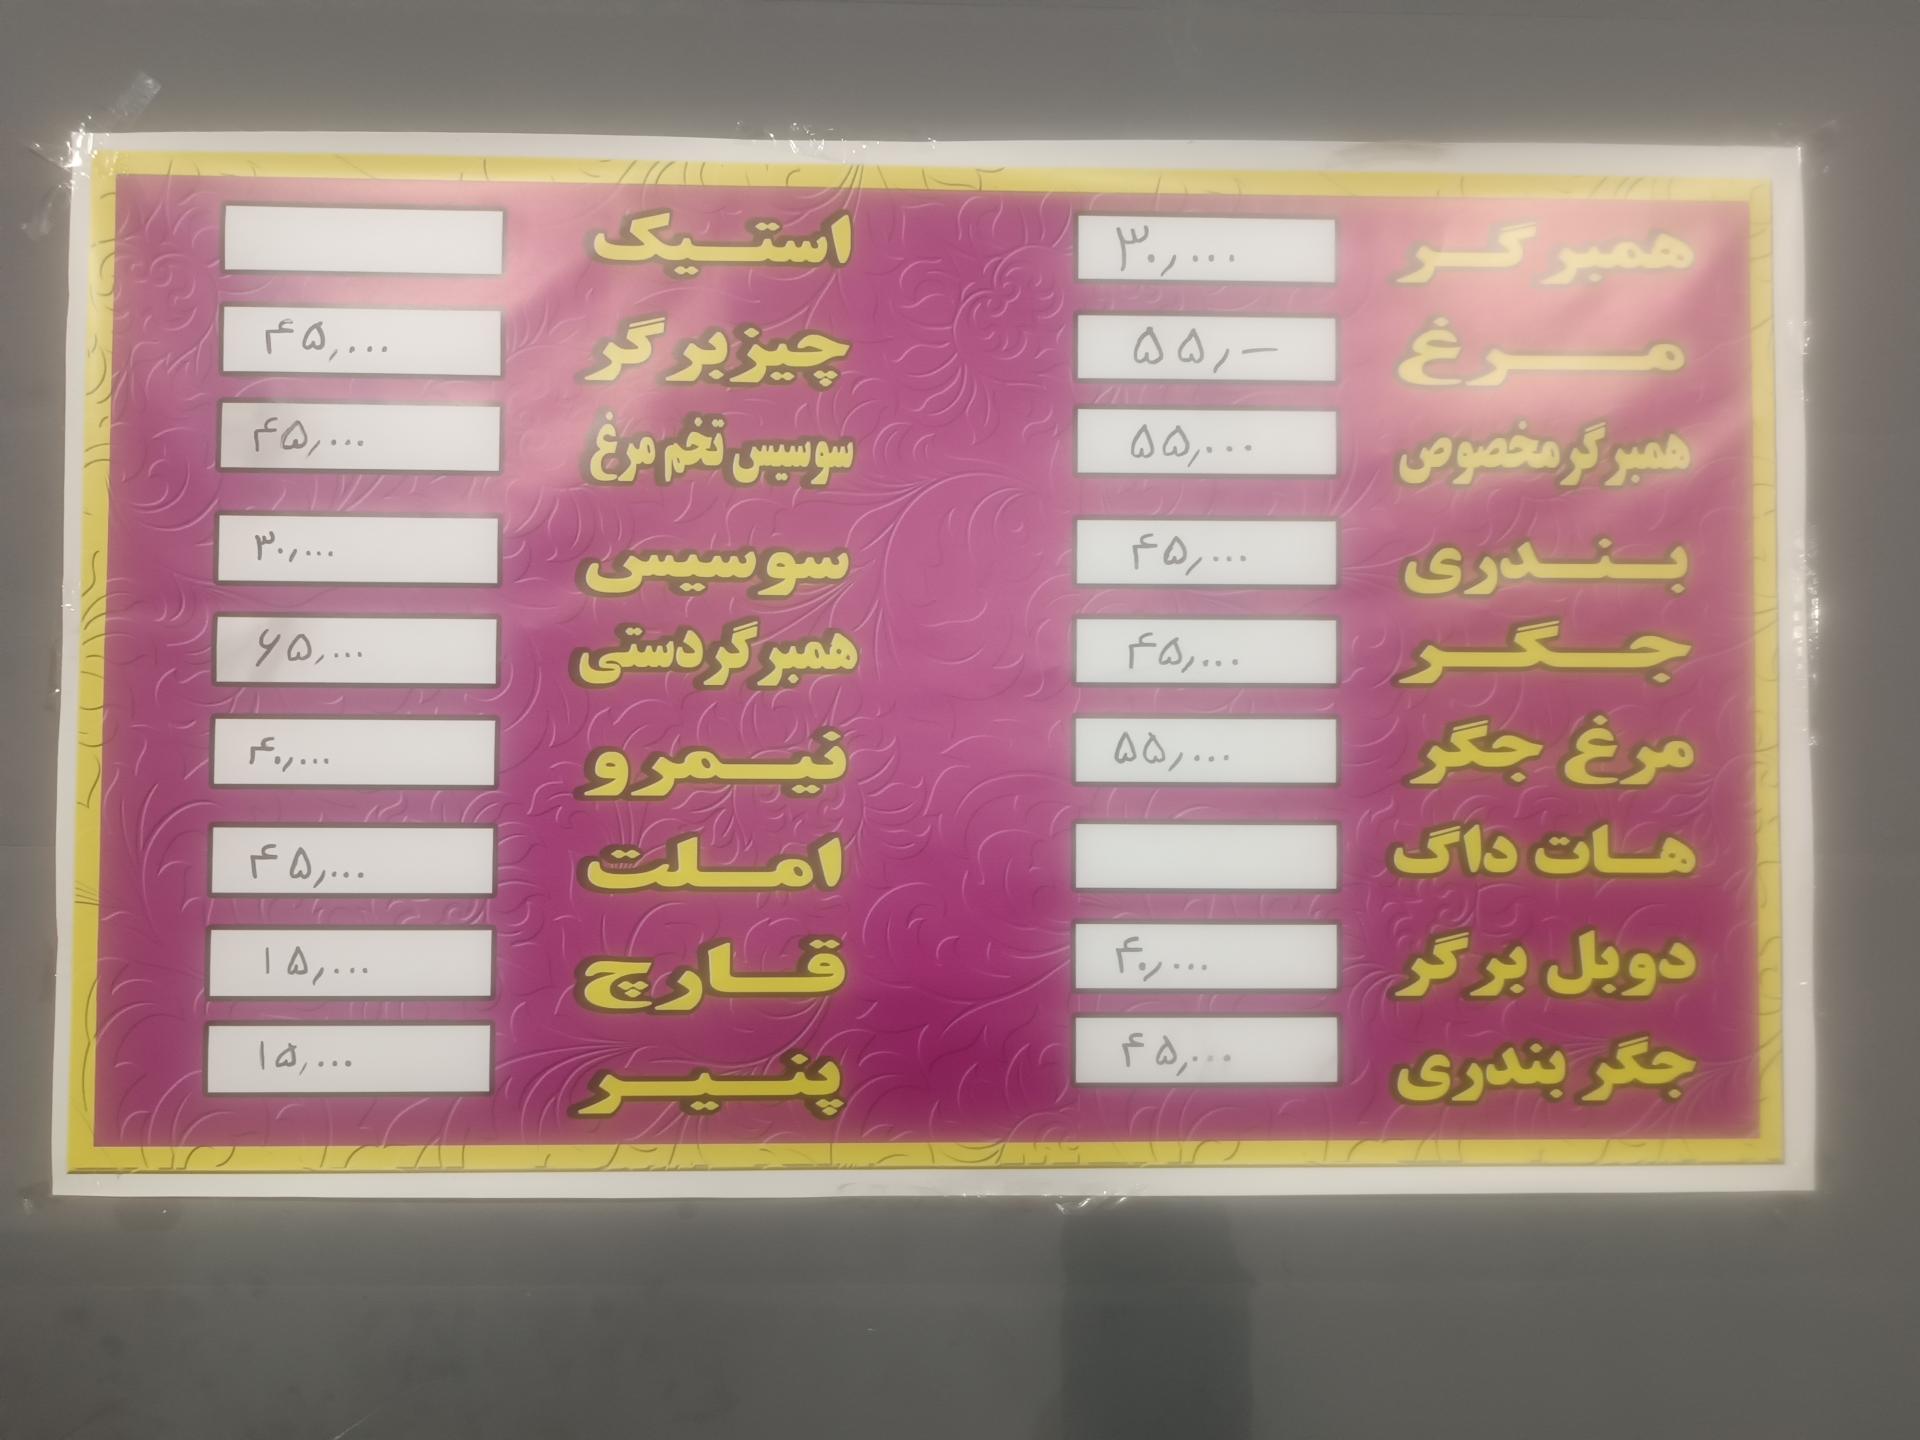 همبرگر ۳۰,۰۰۰
مرغ ۵۵,-
همبرگر مخصوص ۵۵,۰۰۰
بندری ۴۵,۰۰۰
جگر ۴۵,۰۰۰
مرغ جگر ۵۵,۰۰۰
هات داگ
دوبل برگر ۴۰,۰۰۰
جگر بندری ۴۵,۰۰۰
استیک
چیزبرگر ۴۵,۰۰۰
سوسیس تخم مرغ ۴۵,۰۰۰
سوسیس ۳۰,۰۰۰
همبرگر دستی ۶۵,۰۰۰
نیمرو ۴۰,۰۰۰
املت ۴۵,۰۰۰
قارچ ۱۵,۰۰۰
پنیر ۱۵,۰۰۰